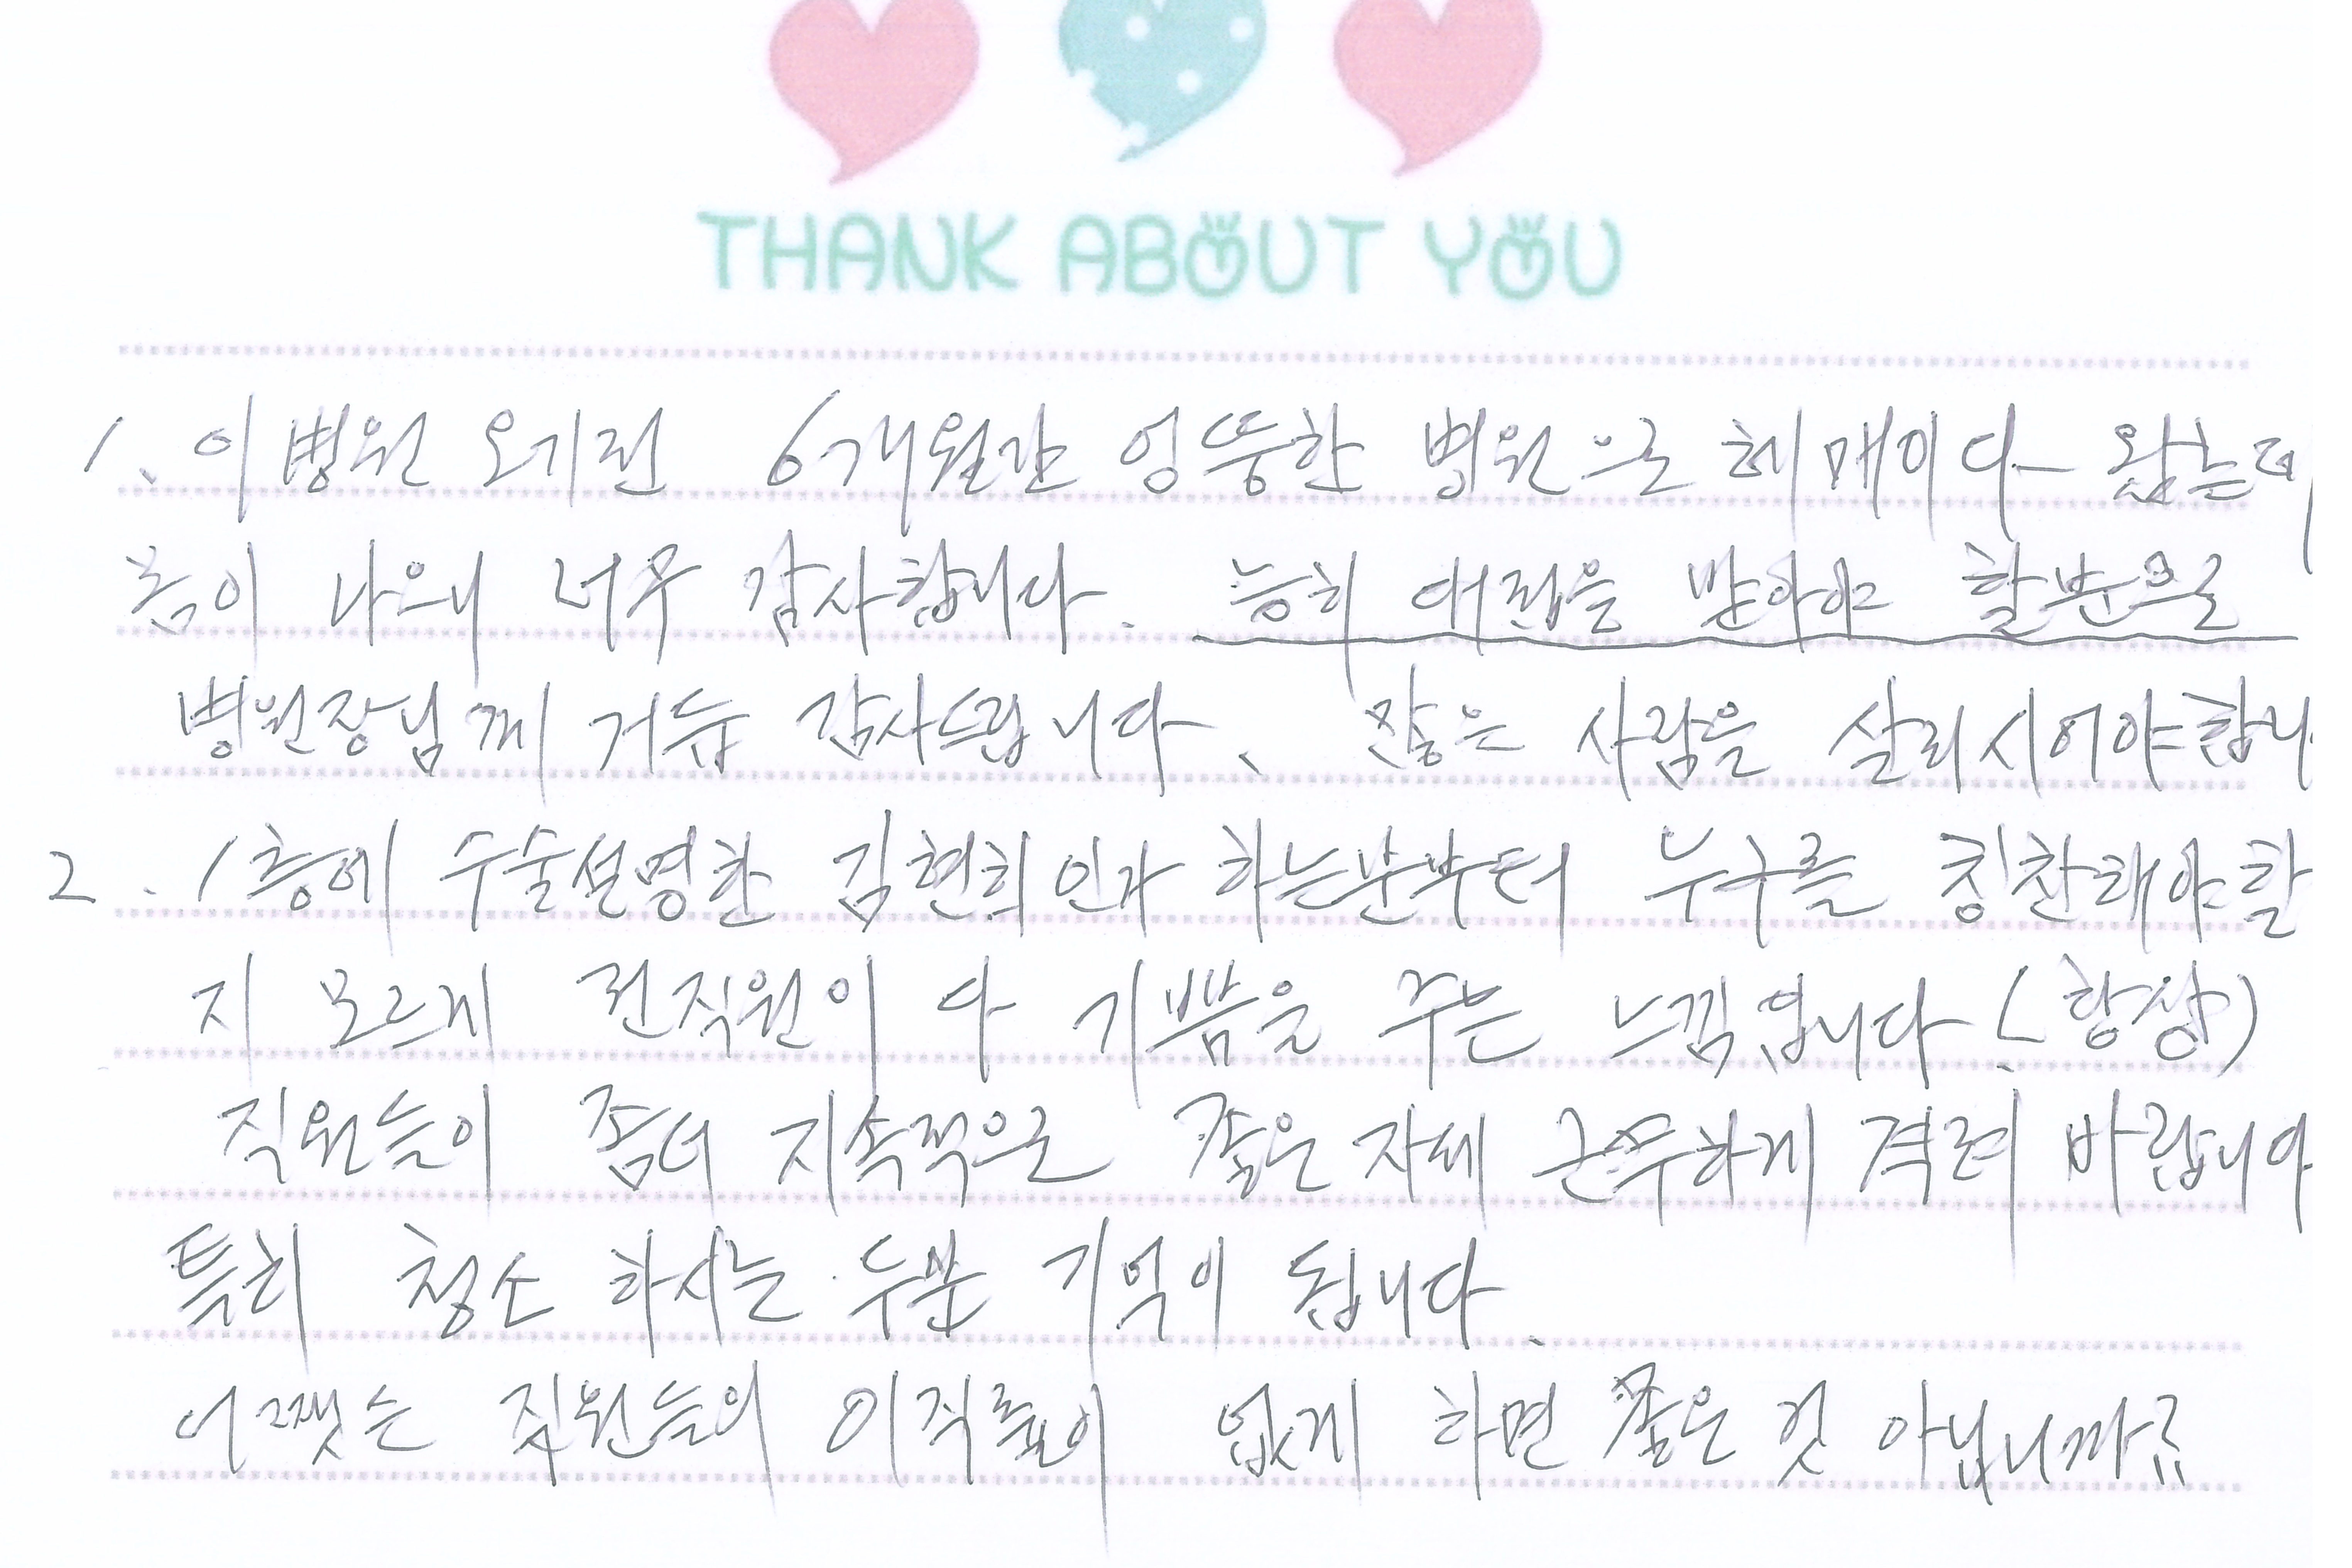 THANK ABOUT YOU
1. 이 병원 오기전 6개월간 엉뚱한 병원으로 헤매이다 왔는데
홈이 나으니 너무 감사합니다. 능히 대접을 받아야 할분으로
병원장님께 거듭 감사드립니다. 많은 사람을 살리시어야합니
2. 1층에 수술설명한 김현희 인가 하는분부터 누구를 칭찬해야할
지 모르게 전직원이 다 기쁨을 주는 느낌입니다 (항상)
직원들이 좀더 지속적으로 좋은 자세 근무하게 격려 바랍니다
특히 청소 하시는 두분 기억이 됩니다.
어쨋든 직원들의 이직률이 없게 하면 좋은 것 아닙니까요